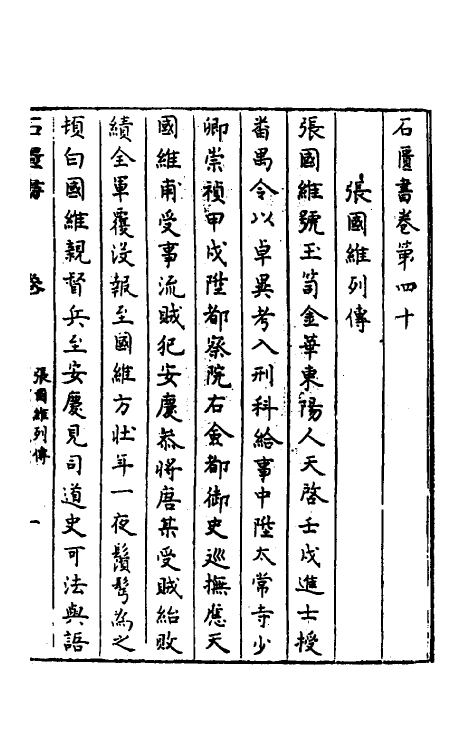 石匱書卷第四十
張國維列傳
張國維號玉笥金華東陽人天啓壬戌進士授
番禺令以卓異考入刑科給事中陞太常寺少
卿崇禎甲戌陞都察院右僉都御史巡撫應天
國維甫受事流賊犯安慶叅將唐某受賊紿敗
績全軍覆沒報至國維方壯年一夜鬚髩為之
頒白國維親督兵至安慶見司道史可法與語
石匱書 卷 張國維列傳 一